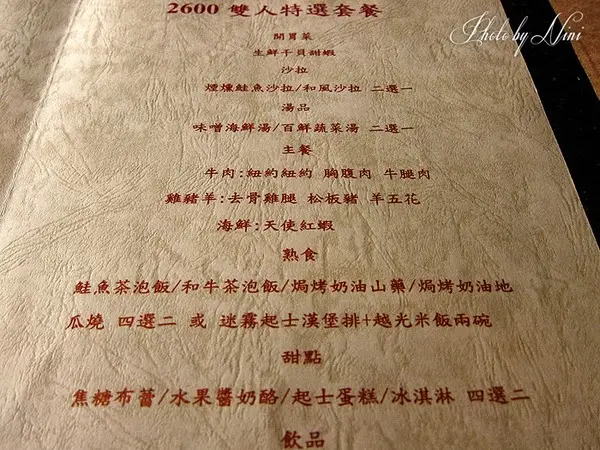 Photo by Nini
2600 雙人特選套餐
開胃菜
生鮮干貝甜蝦
沙拉
煙燻鮭魚沙拉/和風沙拉 二選一
湯品
味噌海鮮湯/百鮮蔬菜湯 二選一
主餐
牛肉:紐約紐約 胸腹肉 牛腿肉
雞豬羊:去骨雞腿 松板豬 羊五花
海鮮:天使紅蝦
熟食
鮭魚茶泡飯/和牛茶泡飯/焗烤奶油山藥/焗烤奶油地
瓜燒 四選二 或 迷霧起士漢堡排+越光米飯兩碗
甜點
焦糖布蕾/水果醬奶酪/起士蛋糕/冰淇淋 四選二
飲品